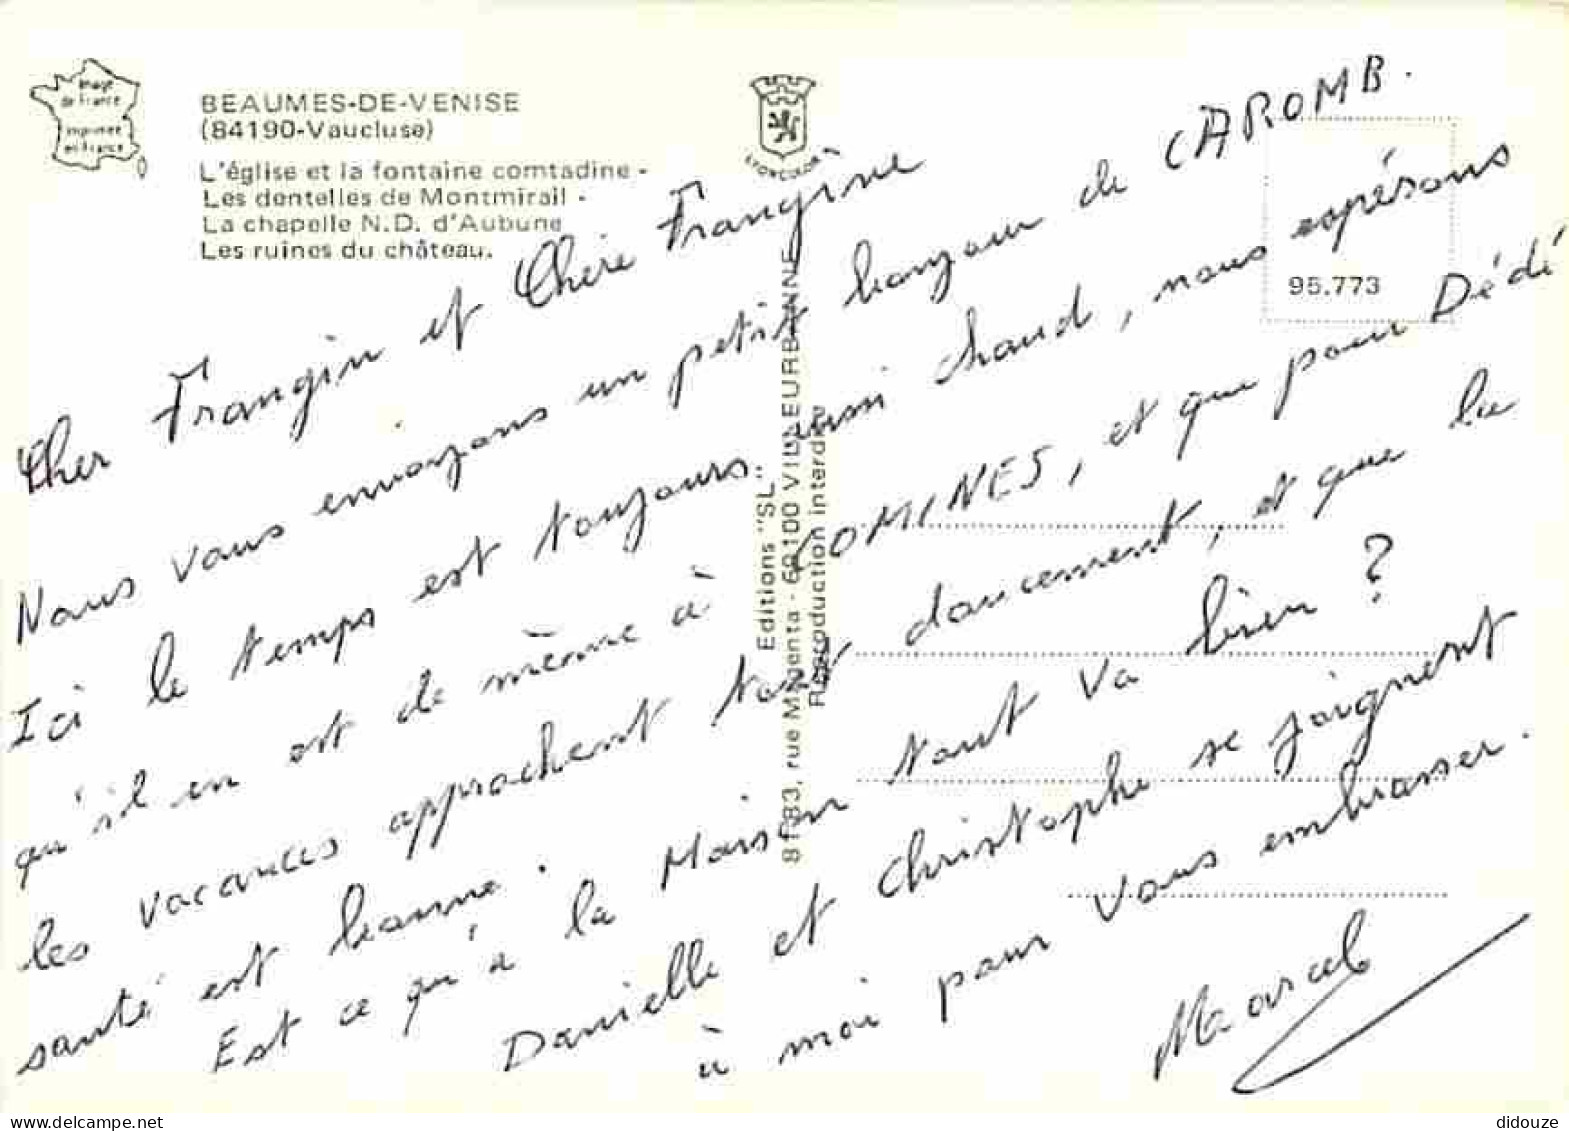 Image
de France
imprimée
en France
BEAUMES-DE-VENISE
(84190-Vaucluse)
L'église et la fontaine comtadine -
Les dentelles de Montmirail -
La chapelle N.D. d'Aubune
Les ruines du château.
LYONCOLOR
95.773
Editions "SL"
81-83, rue Magenta - 69100 VILLEURBANNE
Reproduction interdite
Cher Frangin et Chère Frangine
Nous vous envoyons un petit bonjour de CAROMB.
Ici le temps est toujours aussi chaud, nous espésons
qu'il en est de même à COMINES, et que pour Dédé
les vacances approchent tout doucement, et que la
santé est bonne.
Est ce qu'à la Maison tout va bien ?
Danielle et Christophe se joignent
à moi pour vous embrasser.
Marcel
delcampe.net
didouze